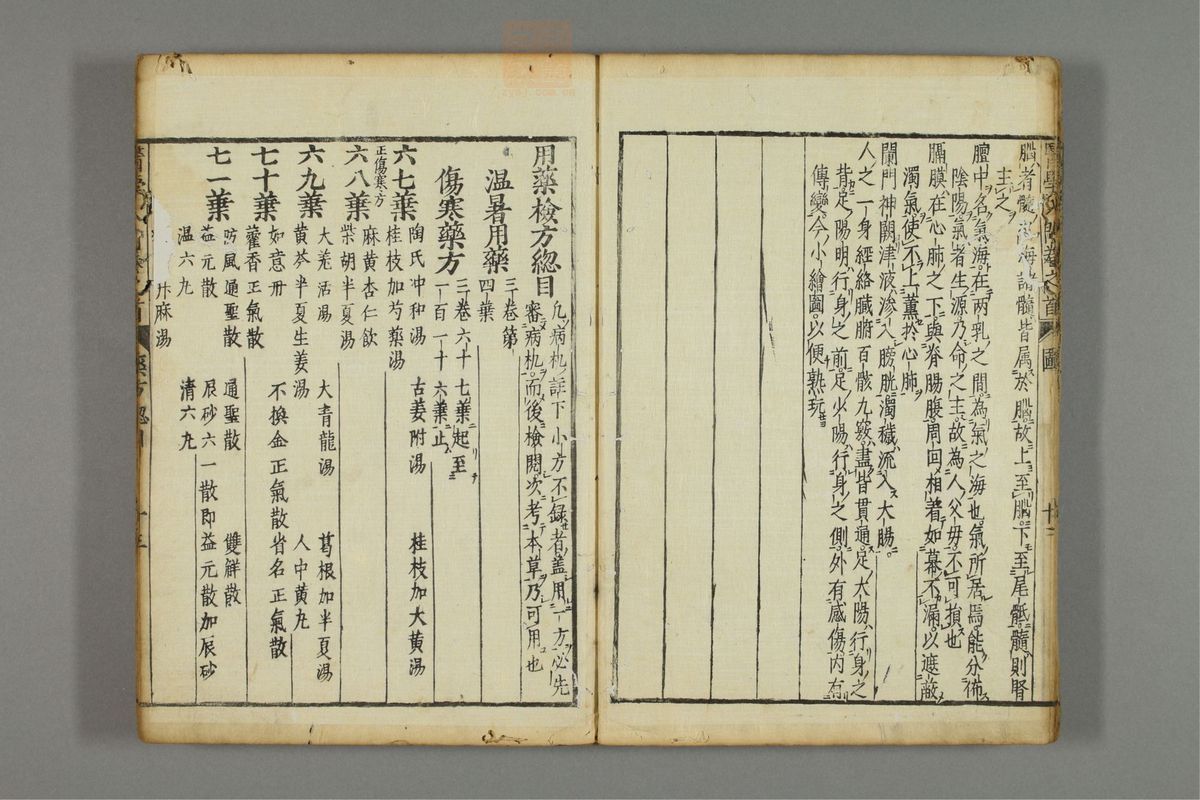 腦者髓之海諸髓皆属於腦故上至腦下至尾骶髓則腎
主之
膻中名氣海在兩乳之間為氣之海也氣所居焉能分佈
陰陽氣者生源乃命之主故為人父母不可損也
膈膜在心肺之下與脊腸腹周回相着如幕不漏以遮蔽
濁氣使不上薰於心肺
闌門神闕津液滲入膀胱濁穢流入大腸
人之一身經絡臟腑百骸九竅盡皆貫通足太陽行身之
背足陽明行身之前足少陽行身之側外有感傷内有
傳變今小繪圖以便熟玩
用藥檢方總目
凡病机註下小方不録者盖用一方必先
審病机而後檢閱次考本草乃可用也
温暑用藥
三卷第
四葉
傷寒藥方
三卷六十七葉起至
一百一十六葉止
六七葉 陶氏冲和湯 古姜附湯 桂枝加大黄湯
正傷寒方 桂枝加芍藥湯
六八葉 麻黄杏仁飲
柴胡半夏湯
六九葉 大羌活湯 大青龍湯 葛根加半夏湯
黄芩半夏生姜湯 人中黄丸
七十葉 如意丹 不換金正氣散 省名正氣散
藿香正氣散
七一葉 防風通聖散 通聖散 雙觧散
益元散 辰砂六一散即益元散加辰砂
温六丸 清六丸
升麻湯